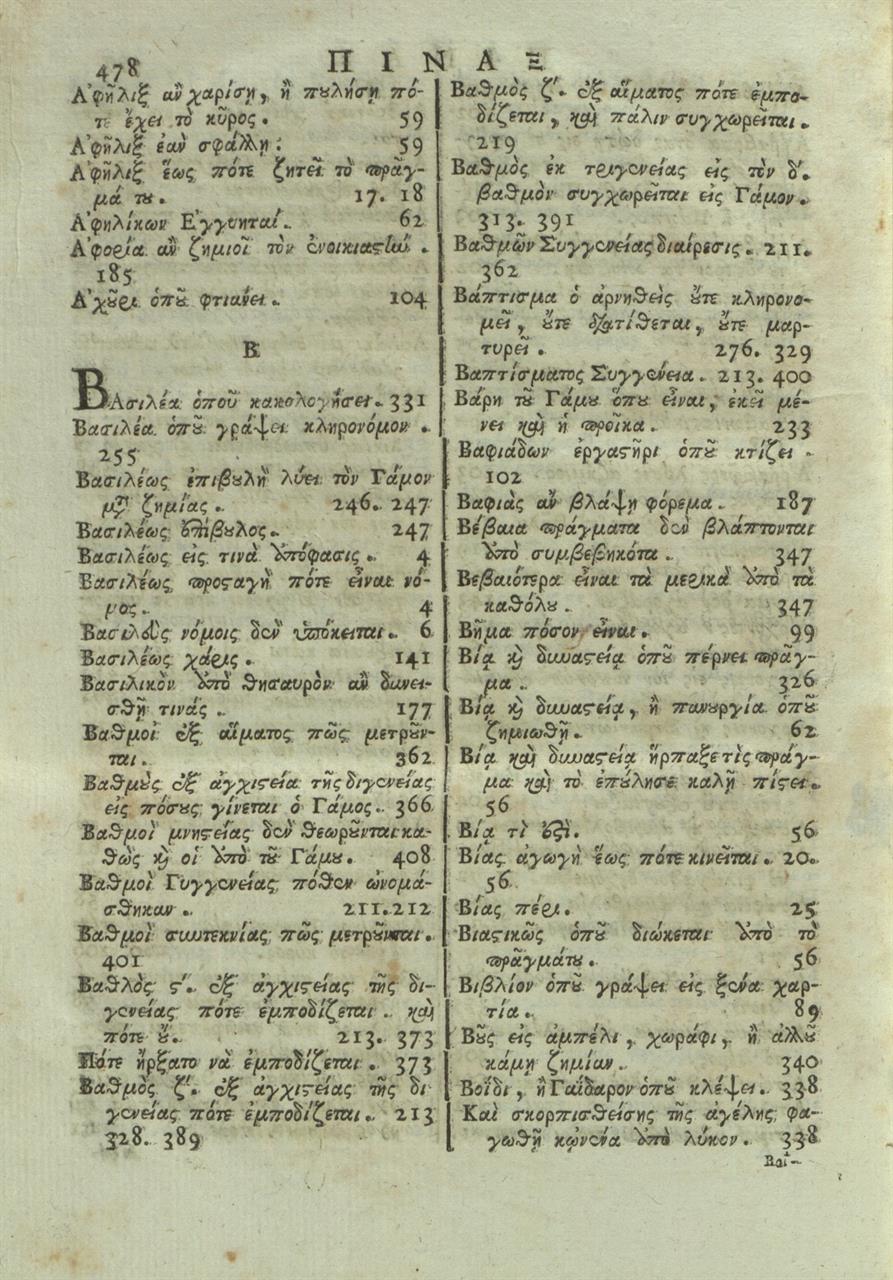 478
ΠΙΝΑΞ
Ἀφῆλιξ ἂν χαρίσῃ, ἢ πουλήσῃ πό-
τε ἔχει τὸ κῦρος. 59
Ἀφῆλιξ ἐὰν σφάλλῃ. 59
Ἀφῆλιξ ἕως πότε ζητεῖ τὸ πρᾶγ-
μά του. 17. 18
Ἀφηλίκων Ἐγγυηταί. 62
Ἀφορία ἂν ζημιοῖ τὸν ἐνοικιαστὴν.
185
Ἀχοῦρι ὁποῦ φτιάνει. 104
Β
ΒΑσιλέα ὁποῦ κακολογήσει. 331
Βασιλέα ὁποῦ γράψει κληρονόμον.
255
Βασιλέως ἐπιβουλὴ λύει τὸν Γάμον
μετὰ ζημίας. 246. 247
Βασιλέως ἐπίβουλος. 247
Βασιλέως εἰς τινὰ ἀπόφασις. 4
Βασιλέως προσταγὴ πότε εἶναι νό-
μος. 4
Βασιλεὺς νόμοις δὲν ὑπόκειται. 6
Βασιλέως χάρις. 141
Βασιλικὸν ἀπὸ θησαυρὸν ἂν δανει-
σθῇ τινάς. 177
Βαθμοὶ ἐξ αἵματος πῶς μετροῦν-
ται. 362
Βαθμοὺς ἐξ ἀγχιστεία τῆς διγενείας
εἰς πόσους γίνεται ὁ Γάμος. 366
Βαθμοὶ μνηστείας δὲν θεωροῦνται κα-
θὼς καὶ οἱ ἀπὸ τοῦ Γάμου. 408
Βαθμοὶ Γυγγενείας πόθεν ὠνομά-
σθηκαν. 211. 212
Βαθμοὶ συντεκνίας πῶς μετροῦνται.
401
Βαθλὸς ϛ΄. ἐξ ἀγχιστείας τῆς δι-
γενείας πότε ἐμποδίζεται. καὶ
πότε οὔ. 213. 373
Πότε ἤρξατο νὰ ἐμποδίζεται. 373
Βαθμὸς ζ΄. ἐξ ἀγχιστείας τῆς δι
γενείας πότε ἐμποδίζεται. 213
328. 389
Βαθμὸς ζ΄. ἐξ αἵματος πότε ἐμπο-
δίζεται, καὶ πάλιν συγχωρεῖται.
219
Βαθμὸς ἐκ τριγενείας εἰς τὸν δ΄.
βαθμὸν συγχωρεῖται εἰς Γάμον.
313. 391
Βαθμῶν Συγγενείας διαίρεσις. 211.
362
Βάπτισμα ὁ ἀρνηθεὶς οὔτε κληρονο-
μεῖ, οὔτε διατίθεται, οὔτε μαρ-
τυρεῖ. 276. 329
Βαπτίσματος Συγγένεια. 213. 400
Βάρη τοῦ Γάμου ὅπου εἶναι, ἐκεῖ μέ-
νει καὶ ἡ προῖκα. 233
Βαφιάδων ἐργαστῆρι ὁποῦ κτίζει.
102
Βαφιὰς ἂν βλάψῃ φόρεμα. 187
Βέβαια πράγματα δὲν βλάπτονται
ἀπὸ συμβεβηκότα. 347
Βεβαιότερα εἶναι τὰ μερικὰ ἀπὸ τὰ
καθόλου. 347
Βῆμα πόσον εἶναι. 99
Βίᾳ καὶ δυναστείᾳ ὁποῦ πέρνει πρᾶγ-
μα. 326
Βίᾳ καὶ δυναστείᾳ, ἢ πανουργίᾳ ὁποῦ
ζημιωθῇ. 62
Βίᾳ καὶ δυναστείᾳ ἥρπαξε τὶς πράγ-
μα καὶ τὸ ἐπούλησε καλῇ πίστει.
56
Βίᾳ τὶ ἐστὶ. 56
Βίας ἀγωγὴ ἕως πότε κινεῖται. 20.
56
Βίας πέρι. 25
Βιαστικῶς ὁποῦ διώκεται ἀπὸ τὸ
πρᾶγμάτου. 56
Βιβλίον ὁποῦ γράψει εἰς ξένα χαρ-
τία. 89
Βοῦς εἰς ἀμπέλι, χωράφι, ἢ ἀλλοῦ
κάμῃ ζημίαν. 340
Βοΐδι, ἢ Γαΐδαρον ὁποῦ κλέψει. 338
Καὶ σκορπισθείσης τῆς ἀγέλης φα-
γωθῇ κᾀνένα ἀπὸ λύκον. 338